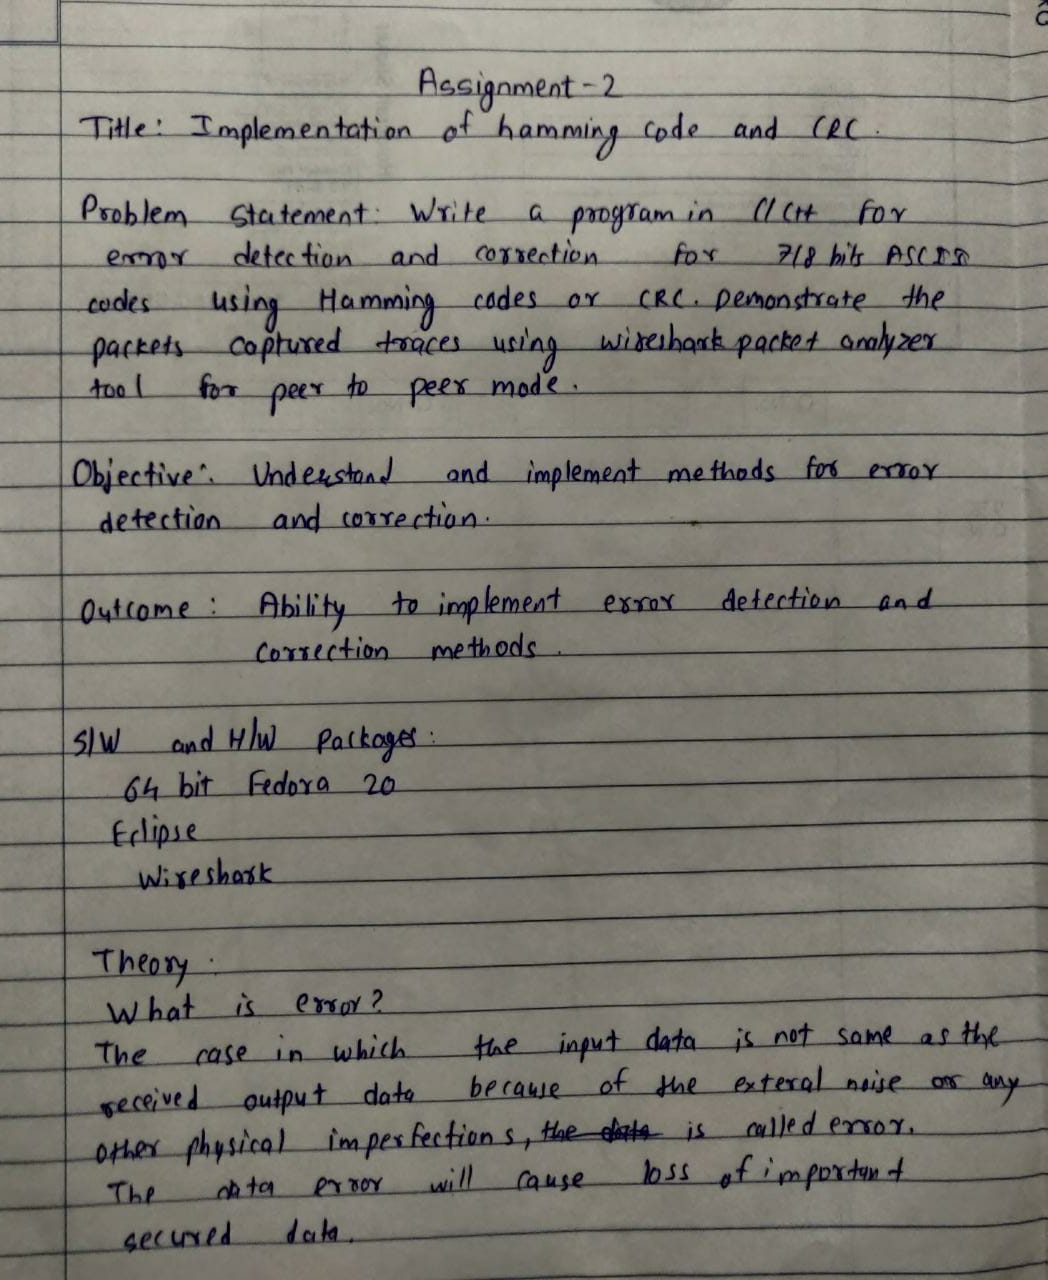 Assignment - 2
Title: Implementation of hamming code and CRC.
Problem Statement: Write a program in C/C++ for
error detection and correction for 7/8 bits ASCII
codes using Hamming codes or CRC. Demonstrate the
packets captured traces using wireshark packet analyzer
tool for peer to peer mode.
Objective: Understand and implement methods for error
detection and correction.
Outcome: Ability to implement error detection and
correction methods.
S/W and H/W Packages:
64 bit Fedora 20
Eclipse
Wireshark
Theory:
What is error?
The case in which the input data is not same as the
received output data because of the exteral noise or any
other physical imperfections, the data is called error.
The data error will cause loss of important
secured data.